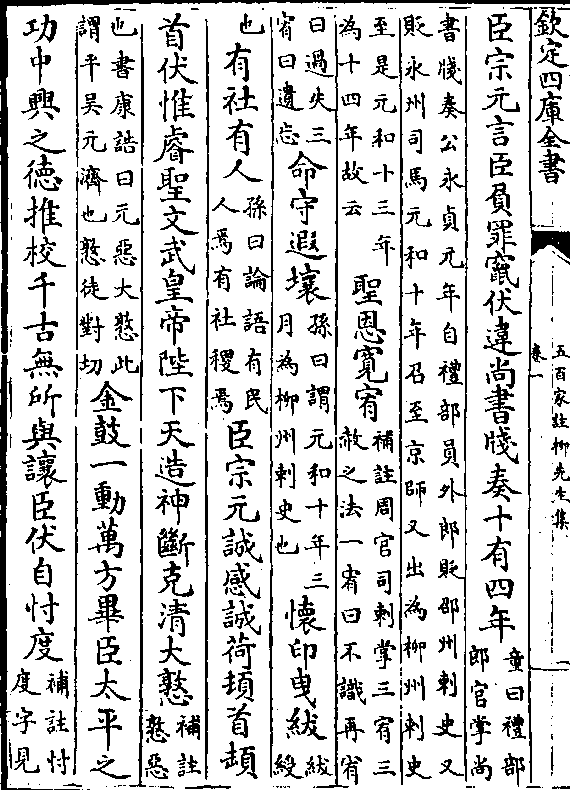 欽定四庫全書
五百家註柳先生集
卷一
臣宗元言臣負罪竄伏違尚書牋奏十有四年
童曰禮部
郎官掌尚
書牋奏公永貞元年自禮部員外郎貶邵州刺史又
貶永州司馬元和十年召至京師又出為柳州刺史
至是元和十三年
為十四年故云
聖恩寛宥
補註周官司刺掌三宥三
赦之法一宥曰不識再宥
曰過失三
宥曰遺忘
命守遐壤
孫曰謂元和十年三
月為柳州刺史也
懷印曳紱
紱
綬
也
有社有人
孫曰論語有民
人焉有社稷焉
臣宗元誠感誠荷頓首頓
首伏惟睿聖文武皇帝陛下天造神斷克清大憝
補註
憝惡
也書康誥曰元惡大憝此
謂平吳元濟也憝徒對切
金鼓一動萬方畢臣太平之
功中興之德推校千古無所與讓臣伏自忖度
補註忖
度字見